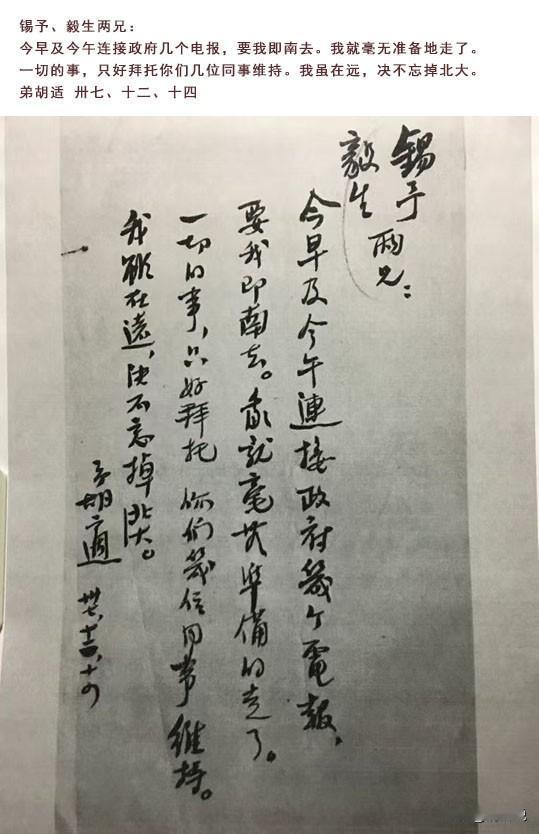 锡予、毅生两兄：
今早及今午连接政府几个电报，要我即南去。我就毫无准备地走了。
一切的事，只好拜托你们几位同事维持。我虽在远，决不忘掉北大。
弟胡适 卅七、十二、十四
錫予
毅生 兩兄：
今早及今午連接政府幾个電報，
要我即南去。我就毫無準備的走了。
一切的事，只好拜托 你们幾位同事維持。
我雖在遠，決不忘掉北大。
弟胡適 卅七、十二、十四